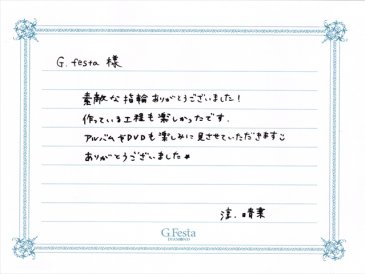 G. festa 様
素敵な指輪ありがとうございました!
作っている工程も楽しかったです.
アルバムやDVDも楽しみに見させていただきます
ありがとうございました
G.Festa
DIAMOND